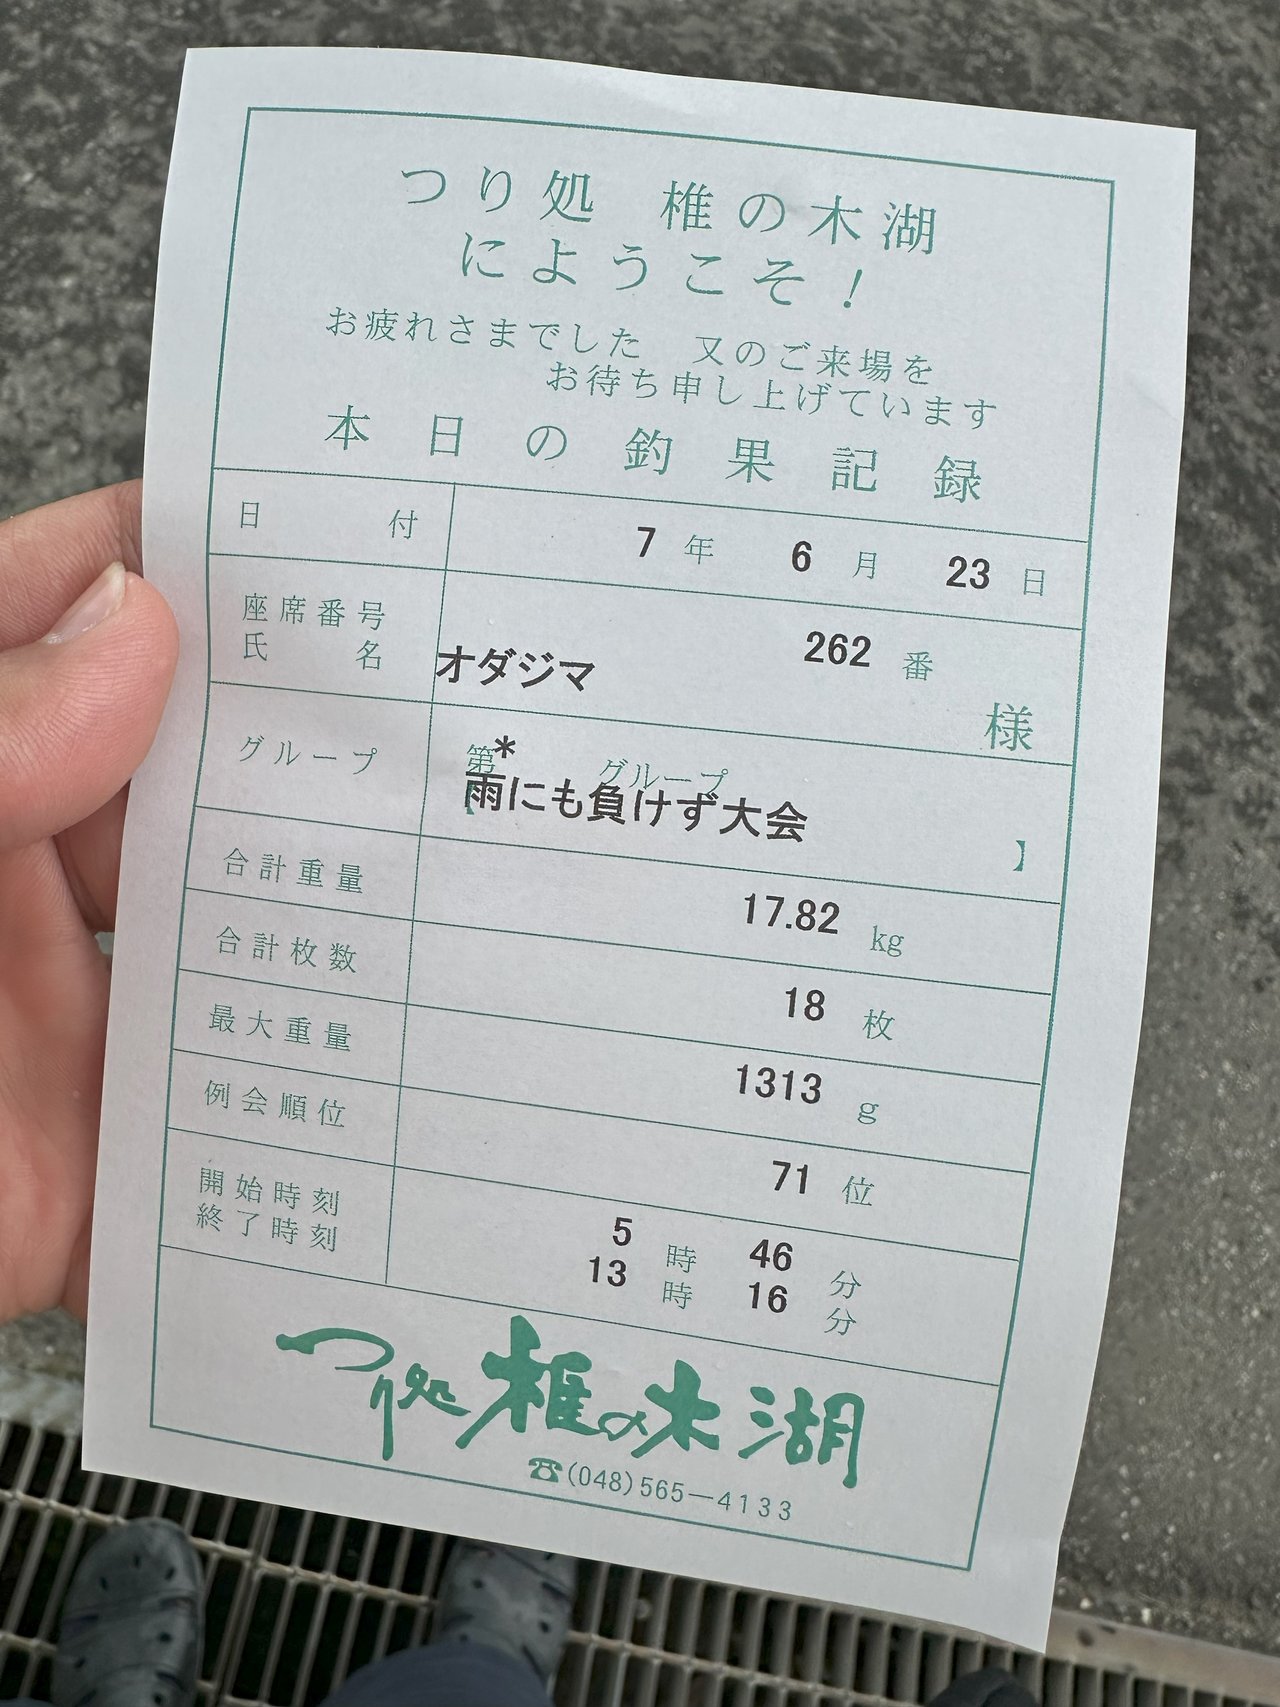 つり処 椎の木湖
にようこそ!
お疲れさまでした 又のご来場を
お待ち申し上げています
本日の釣果記録
日付 7年 6月 23日
座席番号 262番
氏名 オダジマ 様
グループ 第* グループ
【雨にも負けず大会】
合計重量 17.82 kg
合計枚数 18 枚
最大重量 1313 g
例会順位 71 位
開始時刻 5時 46分
終了時刻 13時 16分
つり処 椎の木湖
☎(048)565-4133